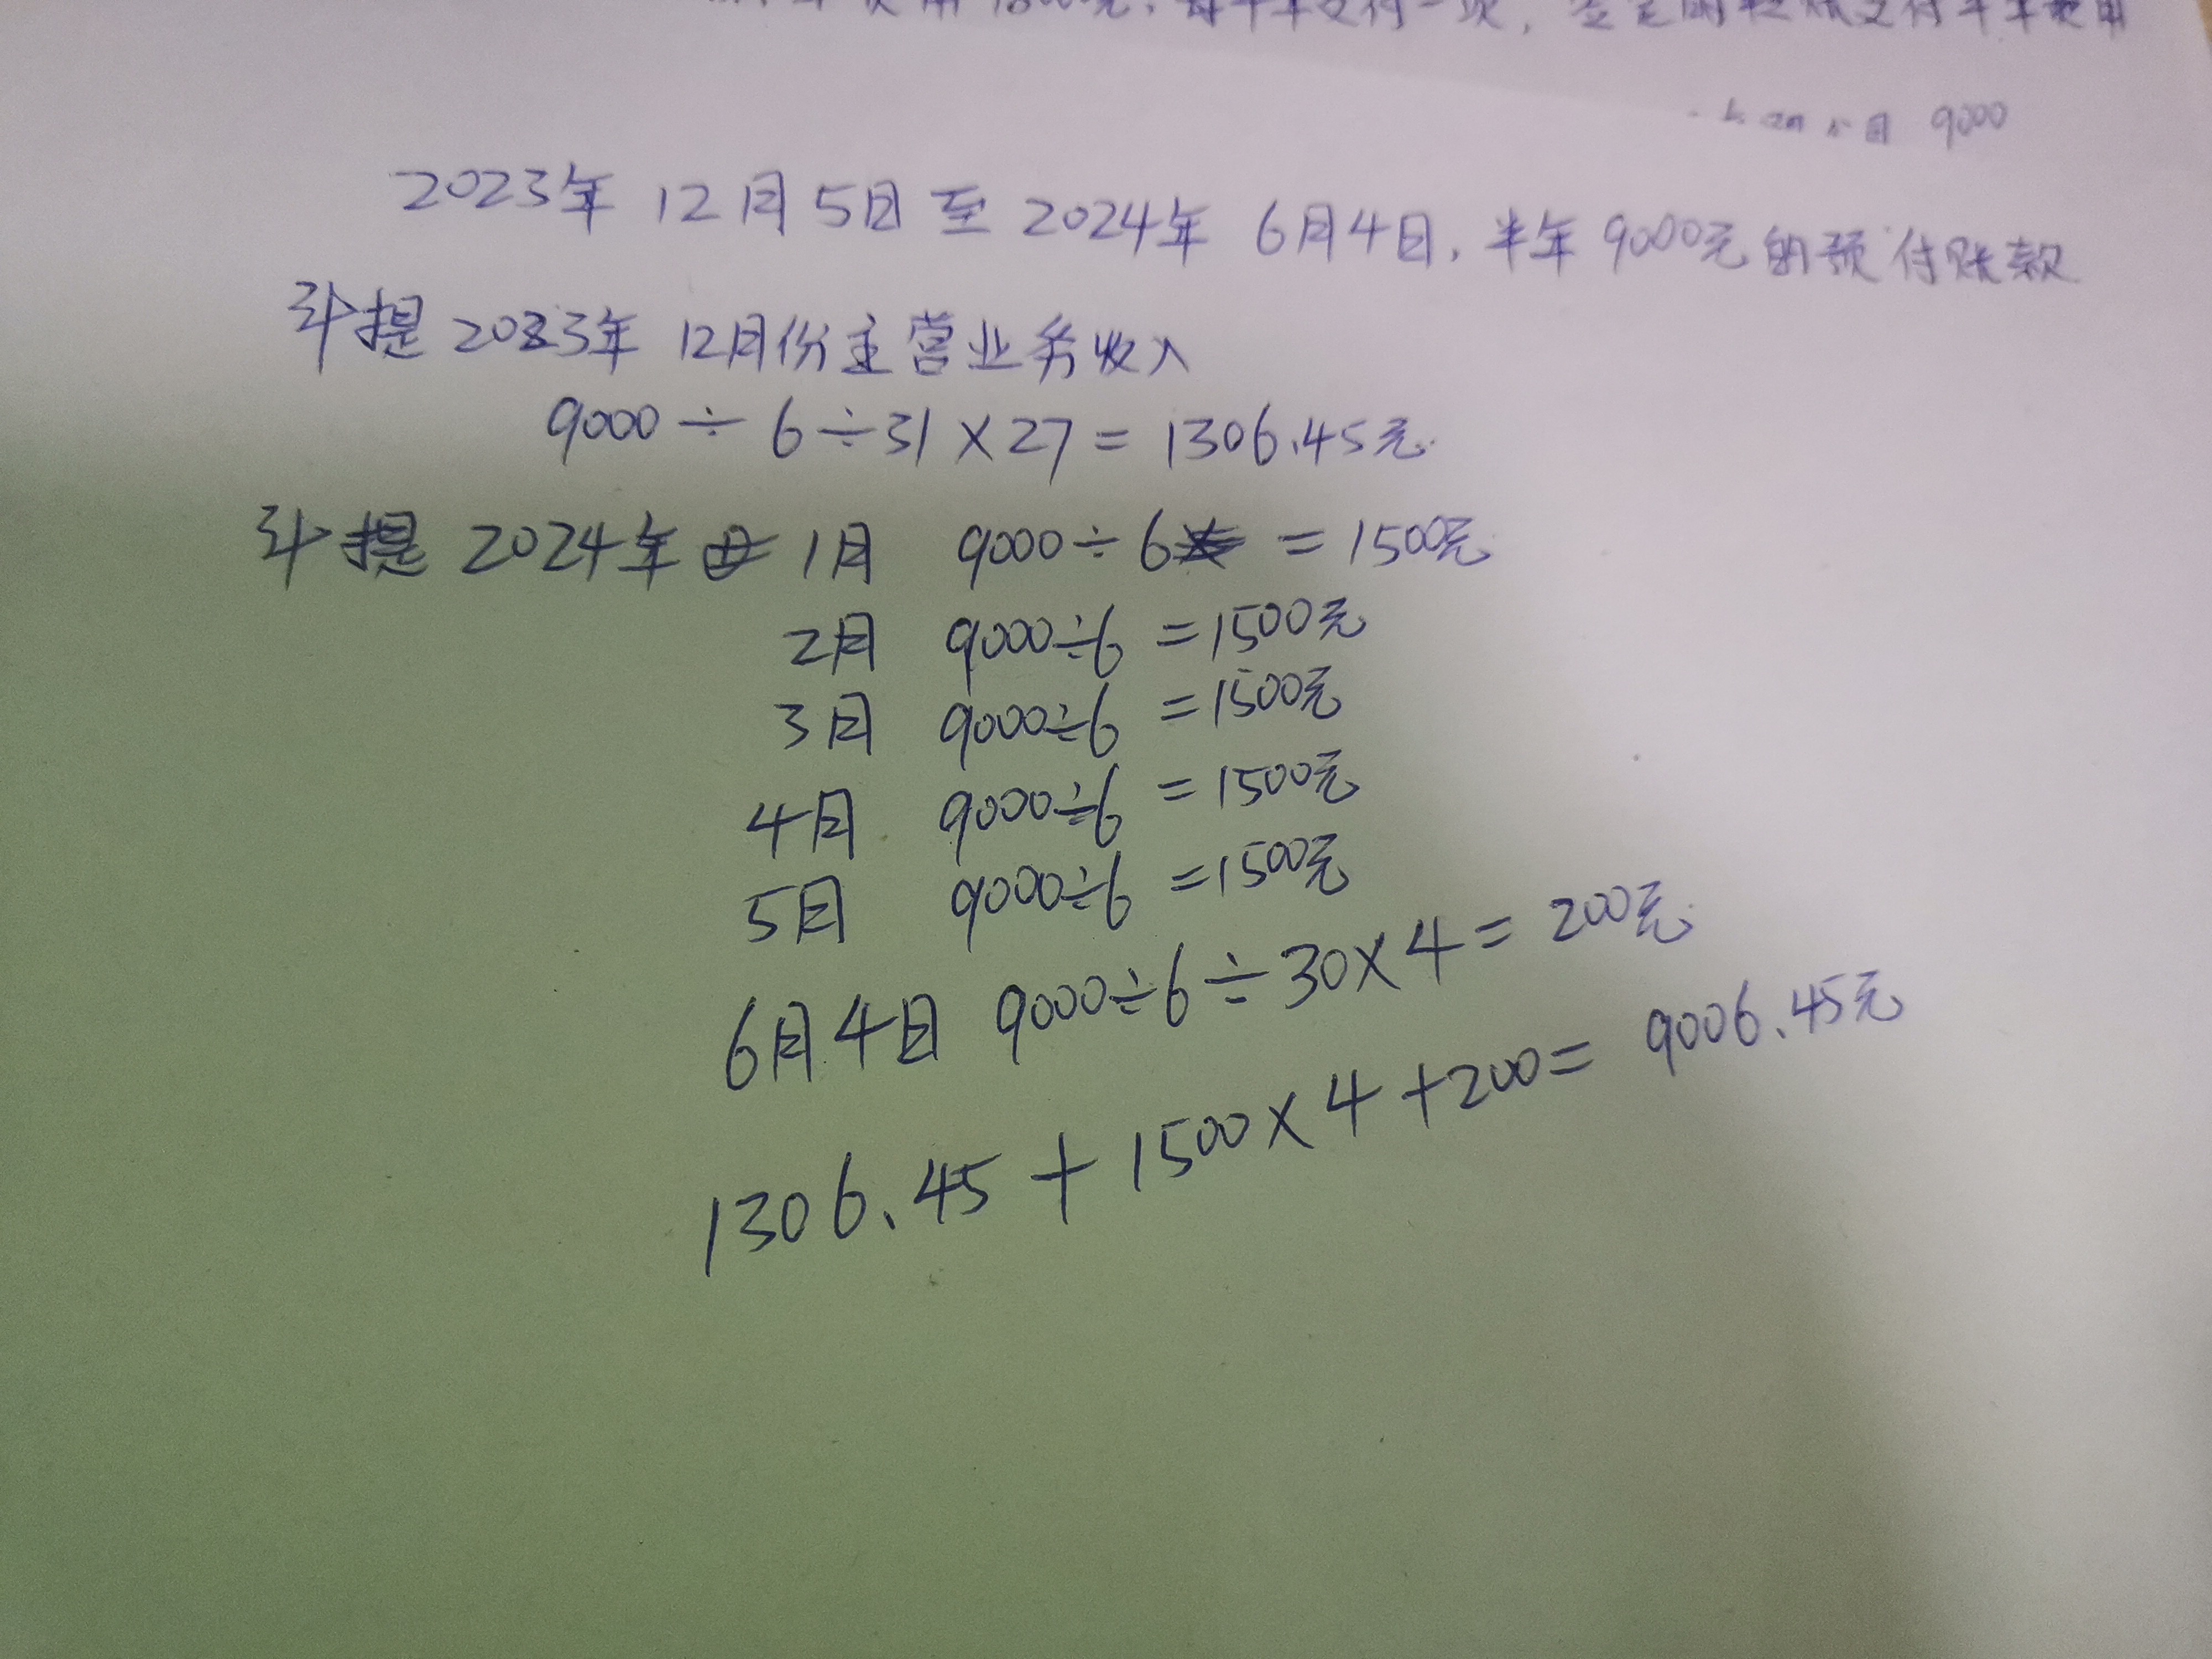 用18000元,每半年支付一次,签定时祝贺支付半年费用
9000
2023年 12月5日至2024年 6月4日,半年9000元的预付账款
计提 2023年 12月份主营业务收入
9000÷6÷31×27=1306.45元
计提 2024年 1月 9000÷6 =1500元
2月 9000÷6 =1500元
3月 9000÷6 =1500元
4月 9000÷6 =1500元
5月 9000÷6 =1500元
6月4日 9000÷6÷30×4=200元
1306.45+1500×4+200=9006.45元